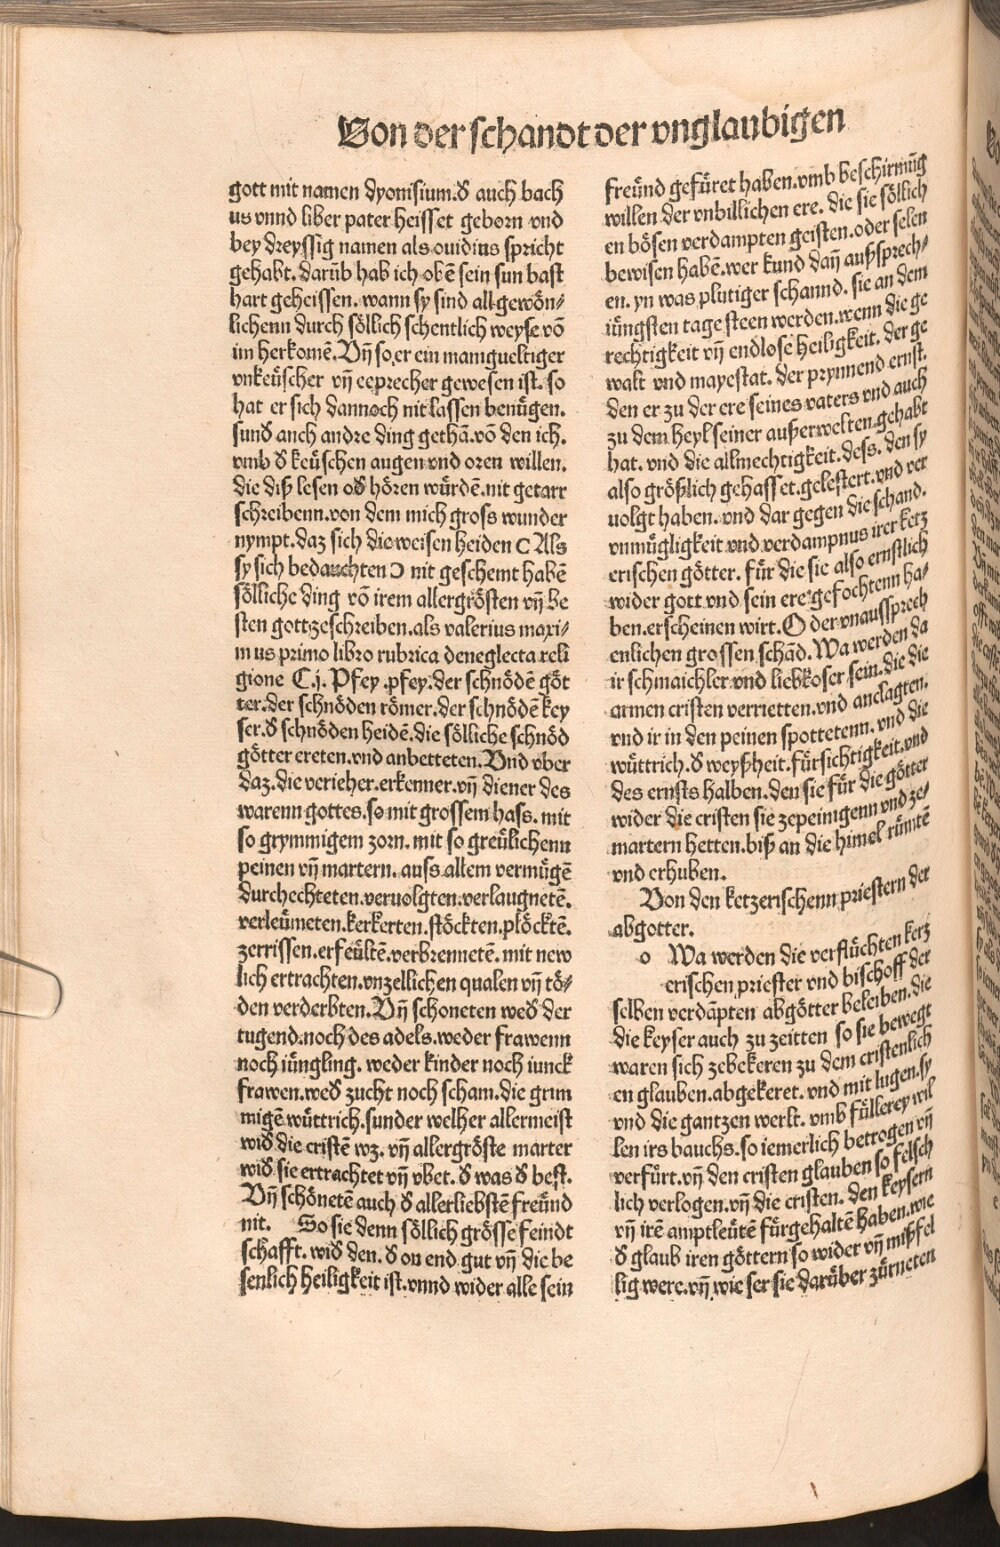 Von der schandt der vnglaubigen
gott mit namen dyonisium. d̕ auch bach
us vnnd liber pater heisset geborn vnd
bey dreyssig namen als ouidius spricht
gehabt. darūb hab ich obē sein sun bast
hart geheissen. wann sy sind all gewön⸗
lichenn durch söllich schentlich weyse vō
im herkomē. Vn̄ so er ein manigueltiger
vnkeüscher vn̄ eeprecher gewesen ist. so
hat er sich dannoch nit lassen benügen.
sund̕ anch andre ding gethā. vō den ich.
vmb d̕ keüschen augen vnd oren willen.
die diß lesen od̕ hören würdē. nit getarr
schreibenn. von dem mich gross wunder
nympt. daz sich die weisen heiden C Als
sy sich bedauchten Ɔ nit geschemt habē
sölliche ding vō irem allergrösten vn̄ be
sten gott zeschreiben. als valerius maxi⸗
mus primo libro rubrica de neglecta reli
gione C. j. Pfey. pfey. der schnödē göt
ter. der schnöden römer. der schnödē key
ser. d̕ schnöden heidē. die sölliche schnöd
götter ereten. vnd anbetteten. Vnd vber
daz. die verieher. erkenner. vn̄ diener des
warenn gottes. so mit grossem hass. mit
so grymmigem zorn. mit so greülichenn
peinen vn̄ martern. auss allem vermügē
durchechteten. veruolgten. verlaugnetē.
verleümeten. kerkerten. stöckten. plöcktē.
zerrissen. erfeültē. verbrennetē. mit new
lich ertrachten. vnzellichen qualen vn̄ tö⸗
den verderbten. Vn̄ schoneten wed̕ der
tugend. noch des adels. weder frawenn
noch iüngling. weder kinder noch iunck
frawen. wed̕ zucht noch scham. die grim
migē wüttrich. sunder welher allermeist
wid̕ die cristē wz. vn̄ allergröste marter
wid̕ sie ertrachtet vn̄ vbet. d̕ was d̕ best.
Vn̄ schönetē auch d̕ allerliebstē freünd
nit. So sie denn söllich grösse feindt
schafft. wid̕ den. d̕ on end gut vn̄ die be
senlich heiligkeit ist. vnnd wider alle sein
freünd gefüret haben. vmb beschirmūg
willen der vnbillichen ere. die sie söllich
en bösen verdampten geisten. oder selen
bewisen habē. wer kund dan̄ außsprech⸗
en. yn was plutiger schannd. sie an dem
iüngsten tage steen werden. wenn die ge
rechtigkeit vn̄ endlose heiligkeit. der ge
walt vnd mayestat. der prynnend ernst.
den er zu der ere seines vaters vnd auch
zu dem heyl seiner außerwelten. gehabt
hat. vnd die allmechtigkeit. dess. den sy
also größlich gehasset. gelestert. vnd ver
uolgt haben. vnd dar gegen die schand.
vnmügligkeit vnd verdampnus irer ketz
erischen götter. für die sie also ernstlich
wider gott vnd sein ere gefochtenn ha⸗
ben. erscheinen wirt. O der vnaussprech
enlichen grossen schād. Wa werden da
ir schmaichler vnd liebkoser sein. die die
armen cristen verrietten. vnd anclagten.
vnd ir in den peinen spottetenn. vnd die
wüttrich. d̕ weyßheit. fürsichtigkeit. vnd
des ernsts halben. den sie für die götter
wider die cristen sie zepeinigenn vnd ze⸗
martern hetten. biß an die himel rümtē
vnd erhuben.
Von den ketzerischenn priestern der
abgotter.
o Wa werden die verflüchten kerz
erischen priester vnd bischoff der
selben verdāpten abgötter beleiben. die
die keyser auch zu zeitten so sie bewegt
waren sich zebekeren zu dem cristenlich
en glauben. abgekeret. vnd mit lugen. sy
vnd die gantzen werlt. vmb füllerey wil
len irs bauchs. so iemerlich betrogen vn̄
verfürt. vn̄ den cristen glauben so felsch
lich verlogen. vn̄ die cristen. den keysern
vn̄ irē amptleütē fürgehaltē haben. wie
d̕ glaub iren göttern so wider vn̄ mißfel
lig were. vn̄ wie ser sie darüber zürneten